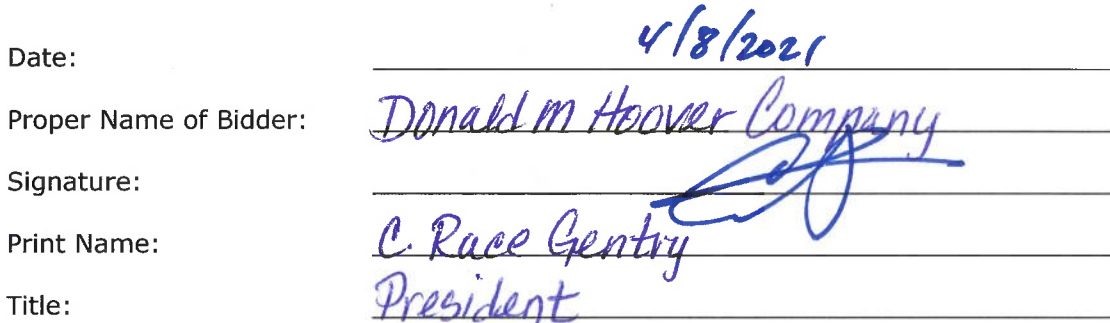 Date: 4/8/2021
Proper Name of Bidder: Donald M Hoover Company
Signature:
Print Name: C. Race Gentry
Title: President